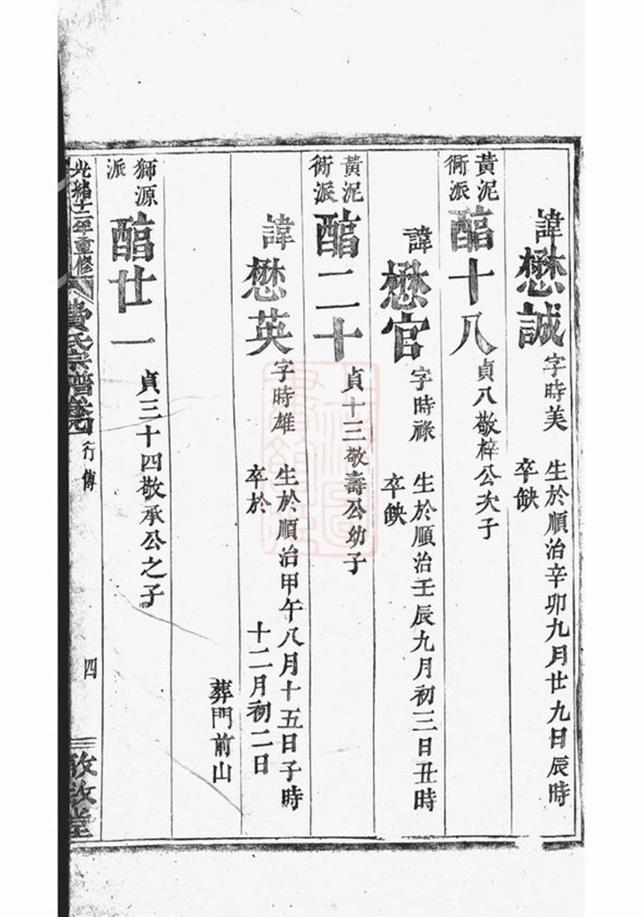 諱懋誠字時美 生於順治辛卯九月廿九日辰時
卒缺
黃泥衕派 醕十八 貞八敬梓公次子
諱懋官字時祿 生於順治壬辰九月初三日丑時
卒缺
黃泥衕派 醕二十 貞十三敬壽公幼子
諱懋英字時雄 生於順治甲午八月十五日子時
卒於 十二月初二日
葬門前山
獅源派 醕廿一 貞三十四敬承公之子
光緒十二年重修 費氏宗譜 行傳 四